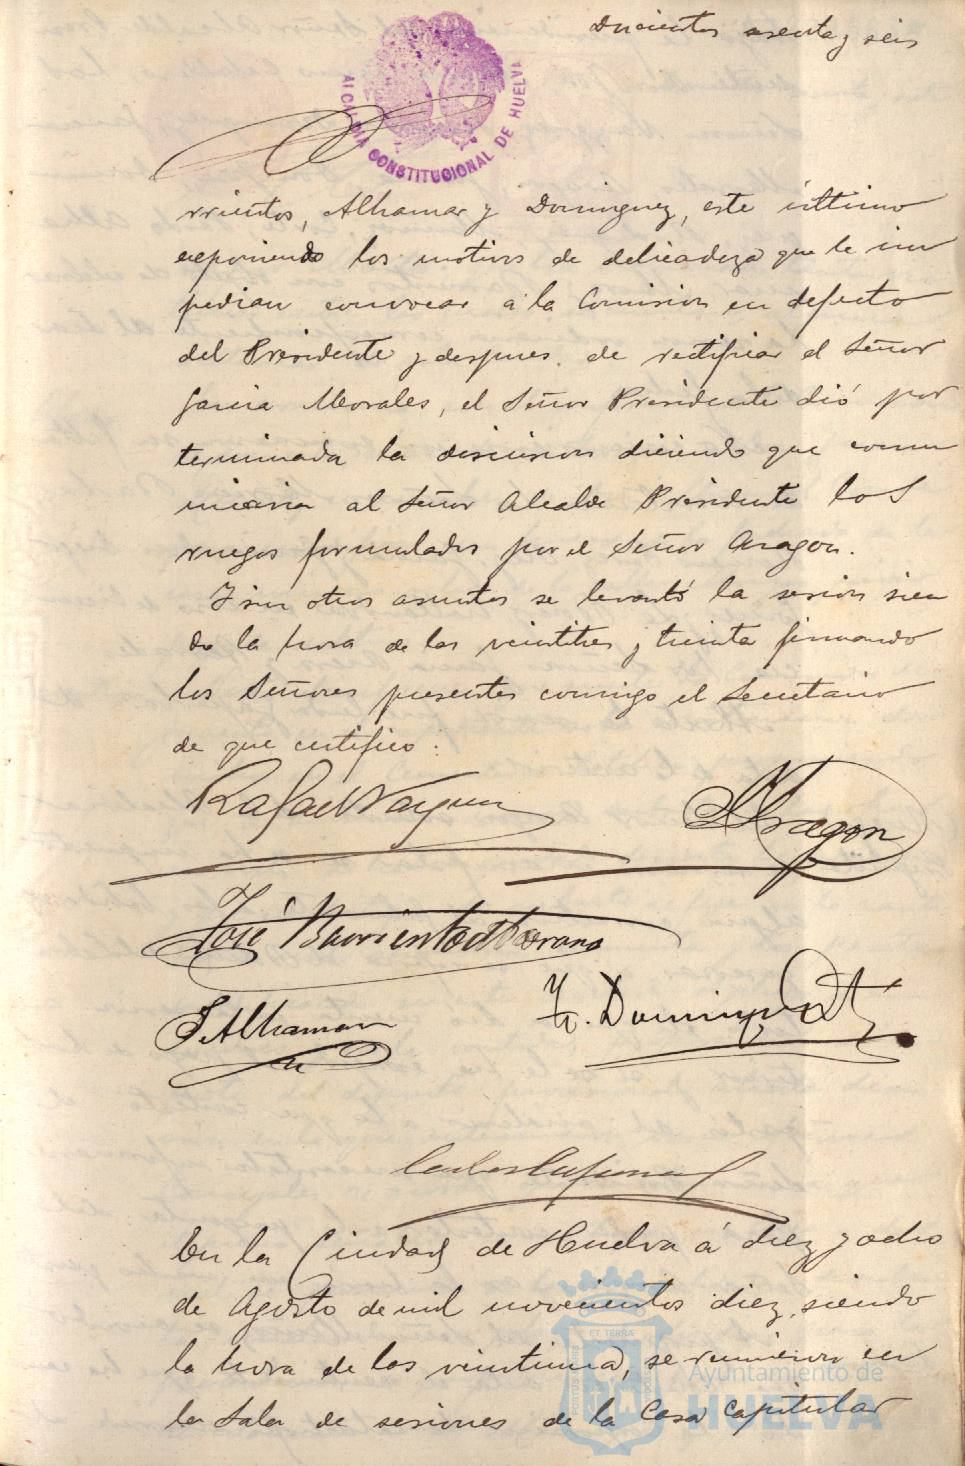 Ducientos sesenta y seis
ALCALDIA CONSTITUCIONAL DE HUELVA
rrientos, Alhamar y Dominguez, este último
exponiendo los motivos de delicadeza que le im
pedian convocar a la Comision en defecto
del Presidente y despues de rectificar el Señor
Garcia Morales, el Señor Presidente dió por
terminada la discusion diciendo que comu
nicaria al Señor Alcalde Presidente los
ruegos formulados por el Señor Aragon.
Y sin otros asuntos se levantó la sesion sien
do la hora de las veintitres y treinta firmando
los Señores presentes conmigo el Secretario
de que certifico:
Rafael Vazquez
Aragon
José Barrientos
Alhamar
Doming
En la Ciudad de Huelva á diez y ocho
de Agosto de mil novecientos diez, siendo
la hora de las veintiuna, se reunieron en
la Sala de sesiones de la Casa Capitular
Ayuntamiento de
HUELVA